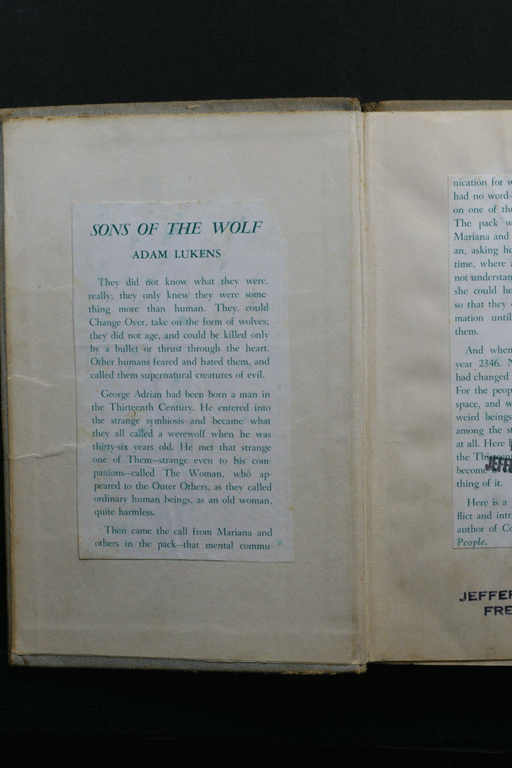 SONS OF THE WOLF
ADAM LUKENS
They did not know what they were,
really; they only knew they were some-
thing more than human. They could
Change Over, take on the form of wolves;
they did not age, and could be killed only
by a bullet or thrust through the heart.
Other humans feared and hated them, and
called them supernatural creatures of evil.
George Adrian had been born a man in
the Thirteenth Century. He entered into
the strange symbiosis and became what
they all called a werewolf when he was
thirty-six years old. He met that strange
one of Them—strange even to his com-
panions—called The Woman, who ap-
peared to the Outer Others, as they called
ordinary human beings, as an old woman,
quite harmless.
Then came the call from Mariana and
others in the pack—that mental commu-
nication for w
had no word-
on one of the
The pack w
Mariana and
an, asking he
time, where a
not understan
she could be
so that they
mation until
them.
And when
year 2346. N
had changed
For the peop
space, and w
weird beings
among the st
at all. Here
the Thirteen
become
thing of it.
Here is a
flict and intr
author of Co
People.
JEFFER
FRE